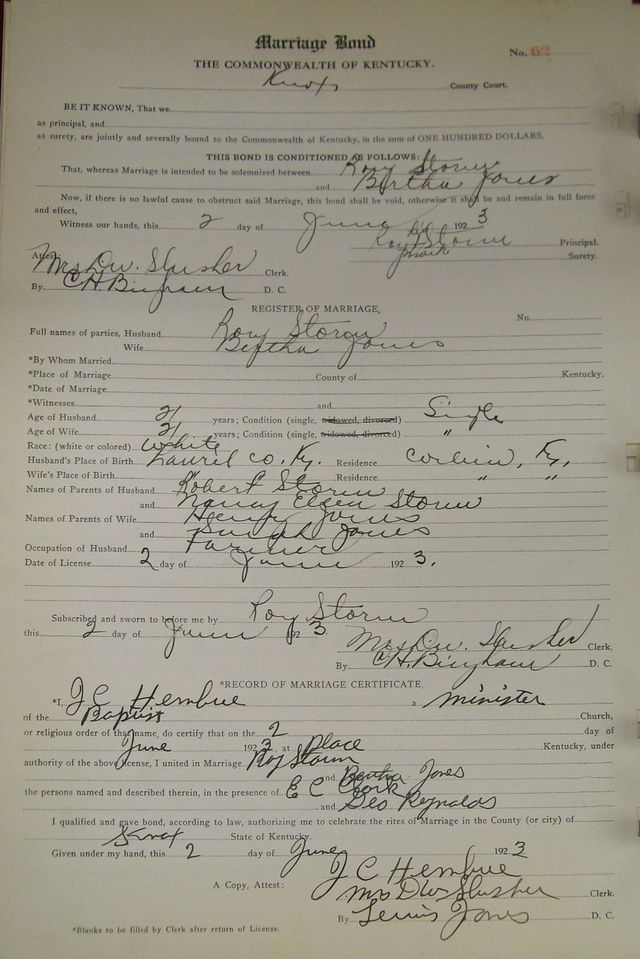 Marriage Bond
No. 62
THE COMMONWEALTH OF KENTUCKY.
Knox County Court.
BE IT KNOWN, That we
as principal, and
as surety, are jointly and severally bound to the Commonwealth of Kentucky, in the sum of ONE HUNDRED DOLLARS.
THIS BOND IS CONDITIONED AS FOLLOWS:
That, whereas Marriage is intended to be solemnized between Roy Storm
and Bertha Jones
Now, if there is no lawful cause to obstruct said Marriage, this bond shall be void, otherwise it shall be and remain in full force
and effect,
Witness our hands, this 2 day of June 1923
Roy his Storm Principal.
mark Surety.
Attest Mrs D.W. Slusher Clerk.
By C H. Bingham D. C.
REGISTER OF MARRIAGE,
No.
Full names of parties, Husband Roy Storm
Wife Bertha Jones
*By Whom Married
*Place of Marriage County of Kentucky.
*Date of Marriage
*Witnesses and
Age of Husband 21 years; Condition (single, widowed, divorced) Single
Age of Wife 21 years; Condition (single, widowed, divorced) "
Race: (white or colored) White
Husband's Place of Birth Laurel Co. Ky. Residence Corbin, Ky,
Wife's Place of Birth Residence " "
Names of Parents of Husband Robert Storm
and Nancy Ellen Storm
Names of Parents of Wife Henry Jones
and Jones
Occupation of Husband Farmer
Date of License 2 day of June 1923.
Subscribed and sworn to before me by Roy Storm
this 2 day of June 1923
Mrs D.W. Slusher Clerk.
By C H. Bingham D. C.
*RECORD OF MARRIAGE CERTIFICATE.
*I, J C Hembree a minister
of the Baptist Church,
or religious order of that name, do certify that on the 2 day of
June 1923, at Place Kentucky, under
authority of the above license, I united in Marriage Roy Storm
and Bertha Jones
the persons named and described therein, in the presence of E C Clark
and Geo Reynolds
I qualified and gave bond, according to law, authorizing me to celebrate the rites of Marriage in the County (or city) of
Knox State of Kentucky.
Given under my hand, this 2 day of June 1923
J C Hembree
A Copy, Attest: Mrs D W Slusher Clerk.
By Jones D. C.
*Blanks to be filled by Clerk after return of License.